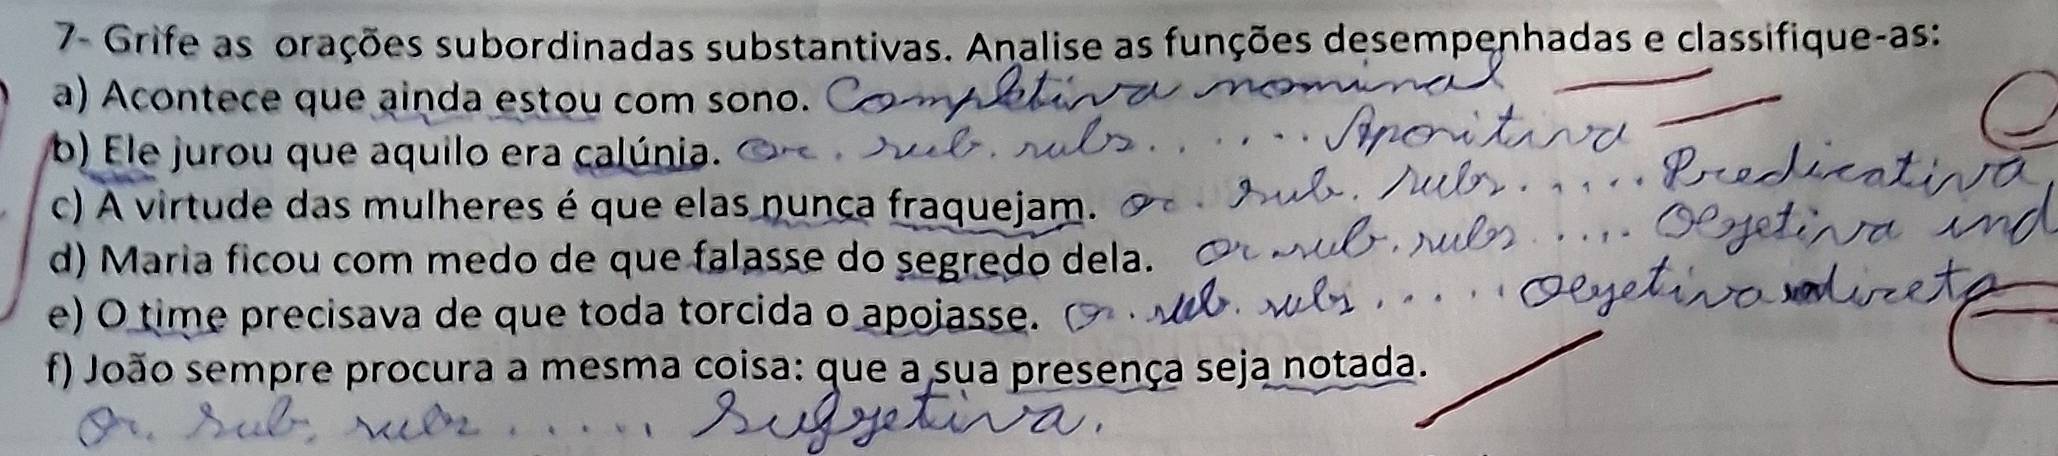 7- Grife as orações subordinadas substantivas. Analise as funções desempenhadas e classifique-as:
a) Acontece que ainda estou com sono. Completiva nominal
b) Ele jurou que aquilo era calúnia. or. sub. subs. . . . . . Apositiva
c) A virtude das mulheres é que elas nunca fraquejam. or. sub. subs. . . . . Predicativa
d) Maria ficou com medo de que falasse do segredo dela. or. sub. subs. . . . . Objetiva ind
e) O time precisava de que toda torcida o apoiasse. or. sub. subs. . . . . Objetiva indireta
f) João sempre procura a mesma coisa: que a sua presença seja notada.
or. sub. subs. . . . . . Subjetiva.